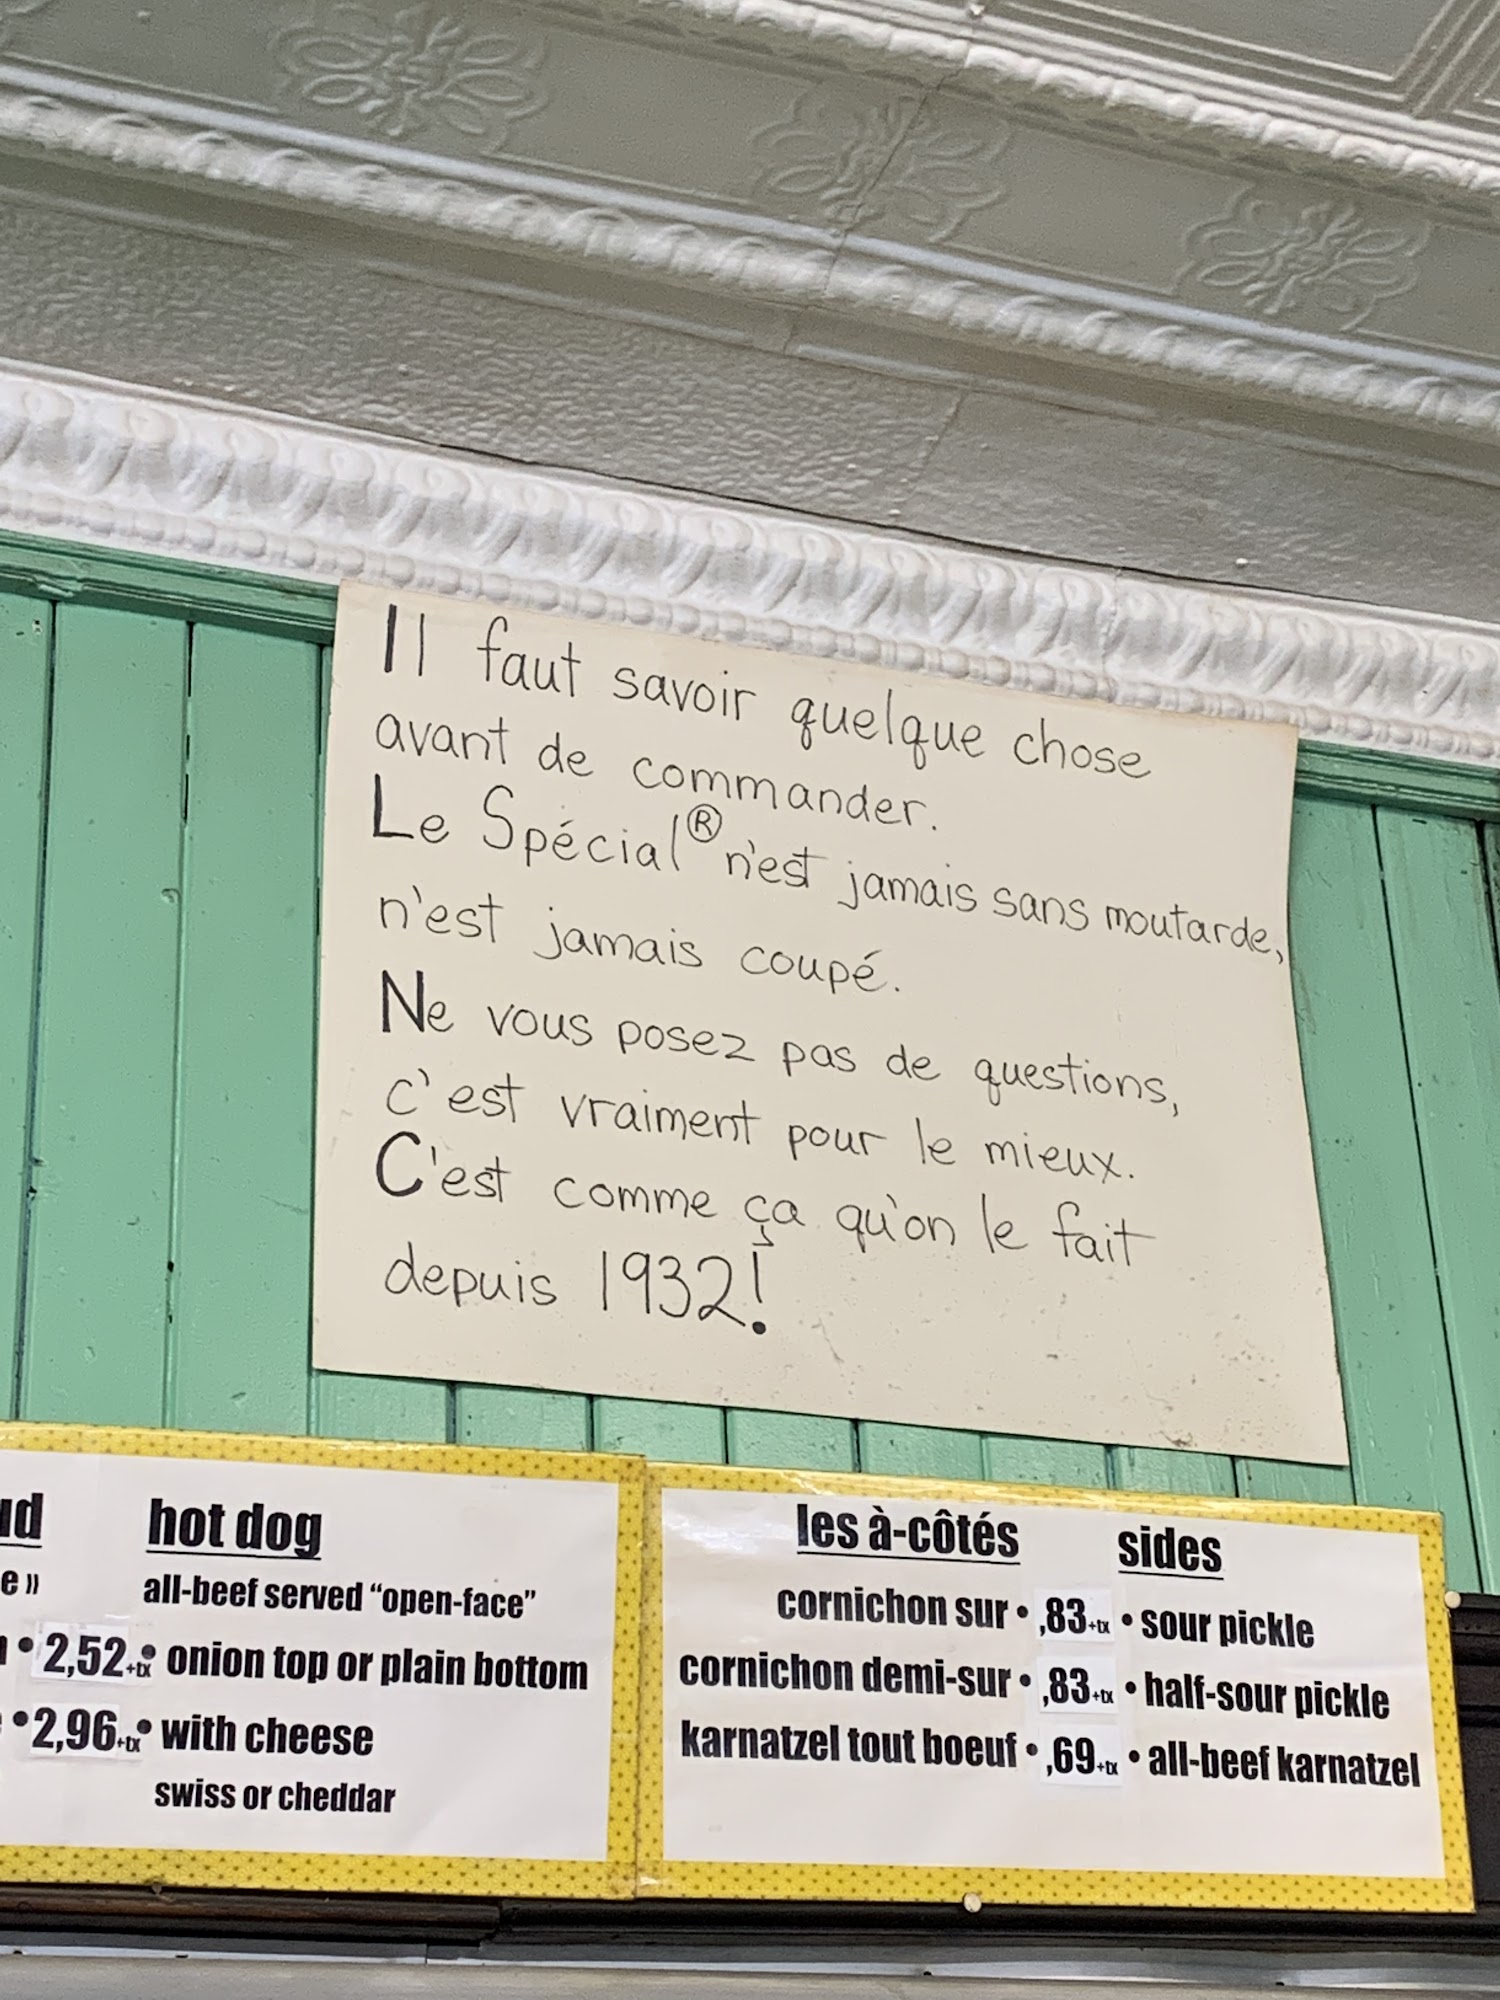 Il faut savoir quelque chose
avant de commander.
Le Spécial® n'est jamais sans moutarde,
n'est jamais coupé.
Ne vous posez pas de questions,
c'est vraiment pour le mieux.
C'est comme ça qu'on le fait
depuis 1932!
hot dog
e »
all-beef served “open-face”
• 2,52+tx • onion top or plain bottom
• 2,96+tx • with cheese
swiss or cheddar
les à-côtés sides
cornichon sur • ,83+tx • sour pickle
cornichon demi-sur • ,83+tx • half-sour pickle
karnatzel tout boeuf • ,69+tx • all-beef karnatzel